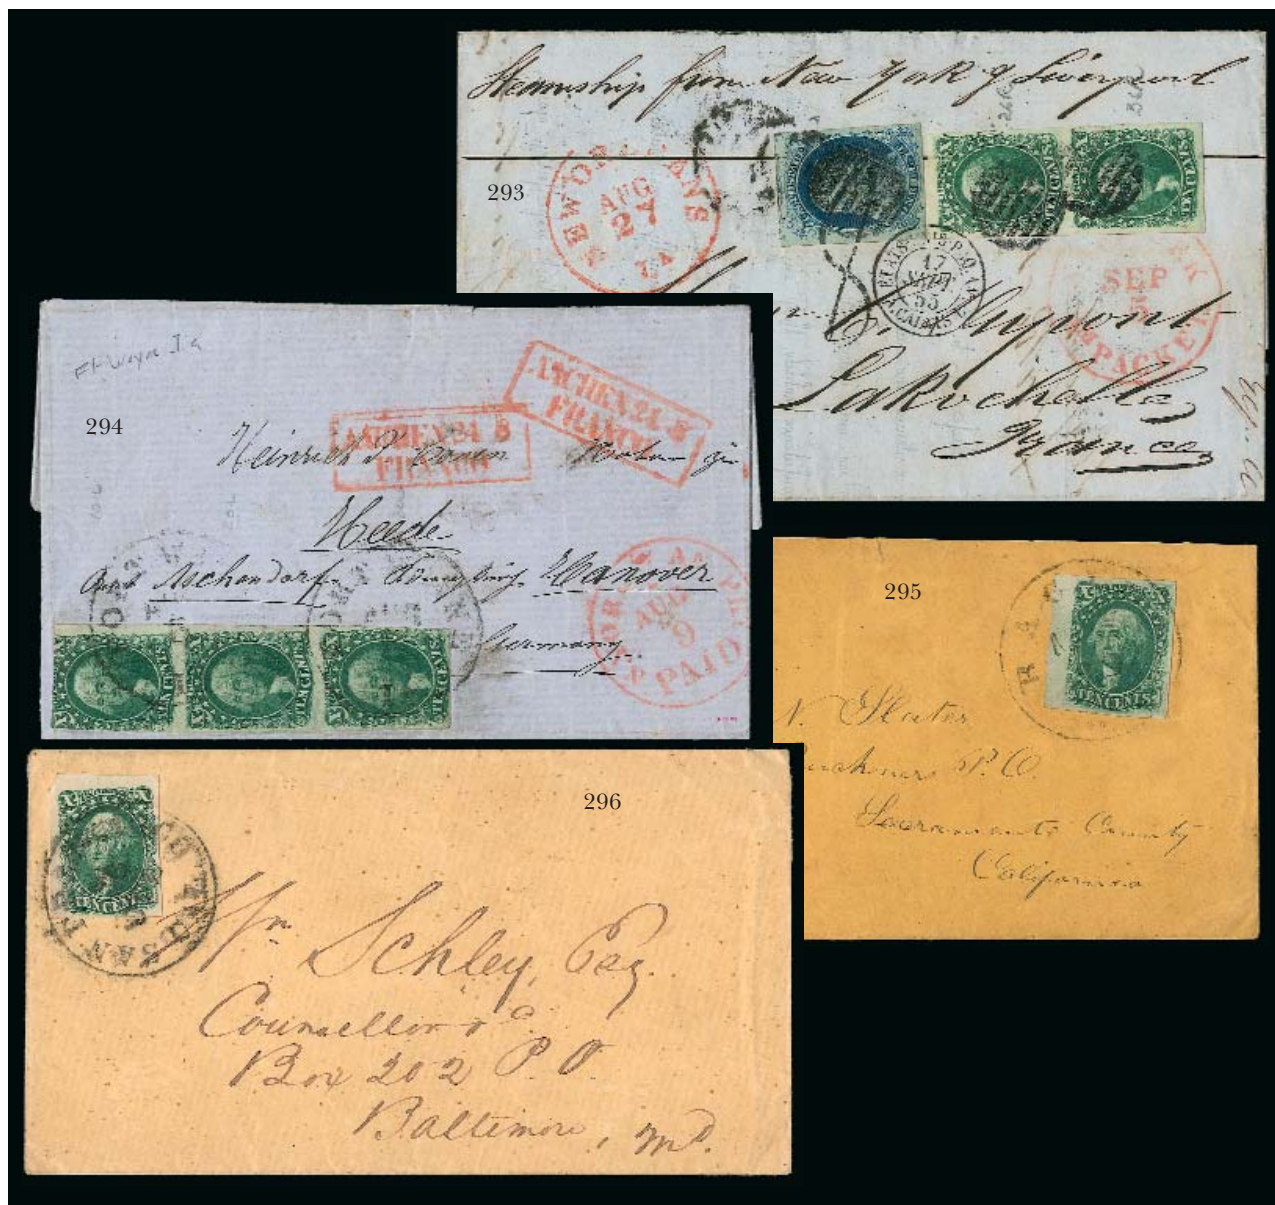 Steamship from New York & Liverpool
26R
36R
NEW ORLEANS
AUG
27
LA
293
ETATS-UNIS
17
SEPT
55
CALAIS
SEP
5
PACKET
Dupont
LaRochelle
France
Ft Wayne Ia
294
AACHEN 21 8
FRANCO
AACHEN 21 8
FRANCO
Heinrich
Heede
Amt Aschendorf Hanover
Germany
AUG
9
PAID
295
TEN CENTS
N. Slater
P.O.
Sacramento County
California
296
X X
SAN FRANCISCO CAL.
Wm Schley, Esq.
Counsellor &c
Box 202 P.O.
Baltimore, Md.